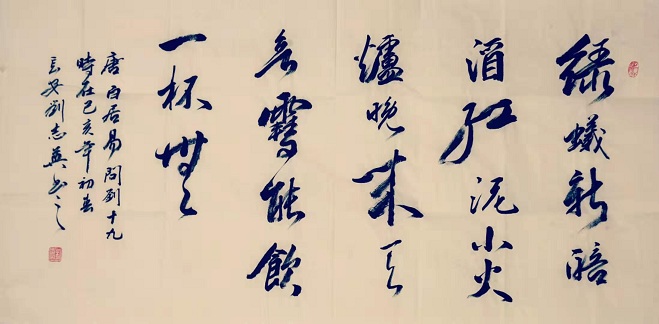 绿蟻新醅
酒红泥小火
爐晚来天
欲雪能飲
一杯無
唐白居易問劉十九
時在己亥年初春
长安劉志英书之